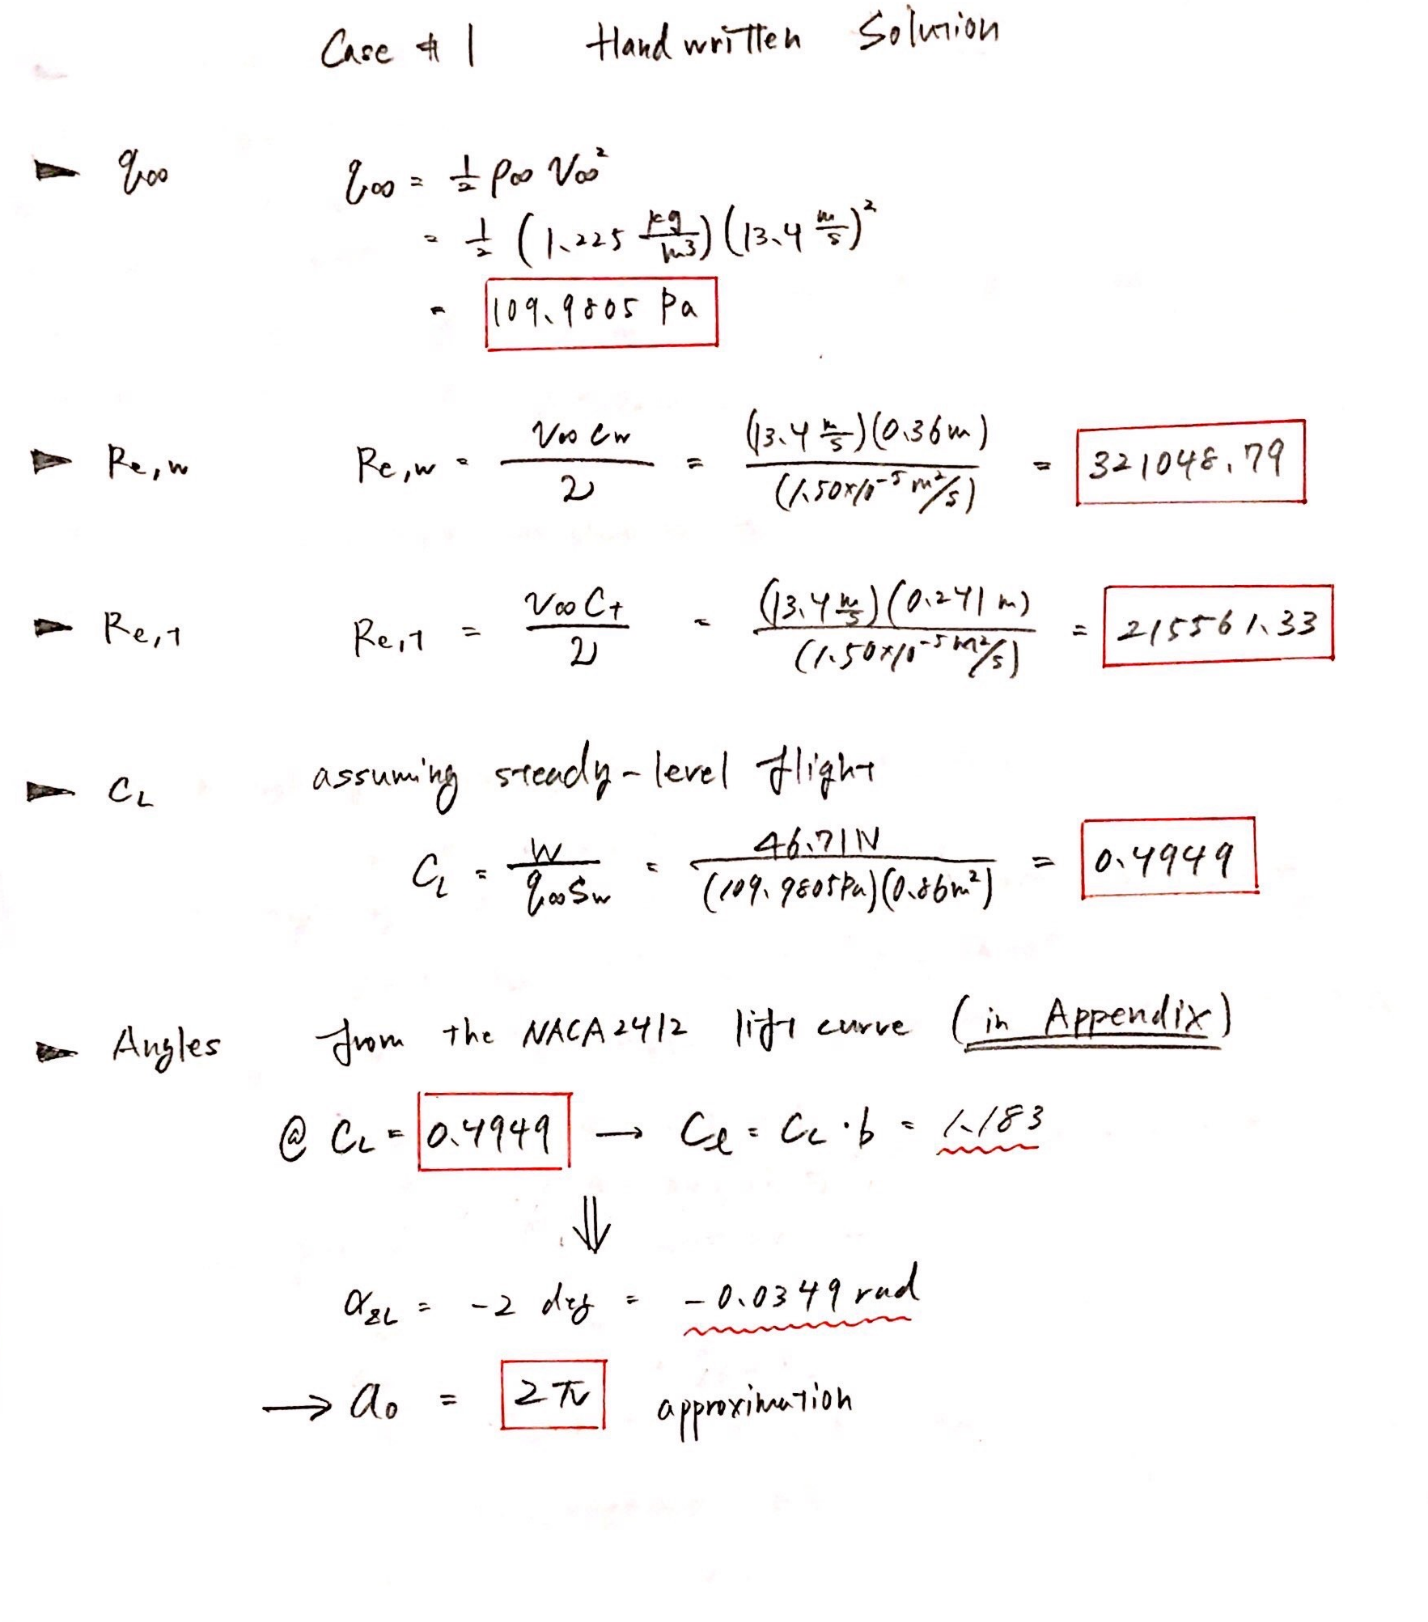 Case # 1 Handwritten Solution
q∞ q∞ = 1/2 ρ∞ V∞²
= 1/2 (1.225 kg/m3) (13.4 m/s)²
= 109.9805 Pa
Re,w Re,w = V∞ Cw / ν = (13.4 m/s)(0.36m) / (1.50×10⁻⁵ m²/s) = 321048.79
Re,T Re,T = V∞ Ct / ν = (13.4 m/s)(0.241 m) / (1.50×10⁻⁵ m²/s) = 215561.33
CL assuming steady-level flight
CL = W / q∞Sw = 46.71N / (109.9805Pa)(0.86m²) = 0.4949
Angles from the NACA2412 lift curve (in Appendix)
@ CL = 0.4949 → Cl = CL · b = 1.183
⇓
αZL = -2 deg = -0.0349 rad
→ a0 = 2π approximation